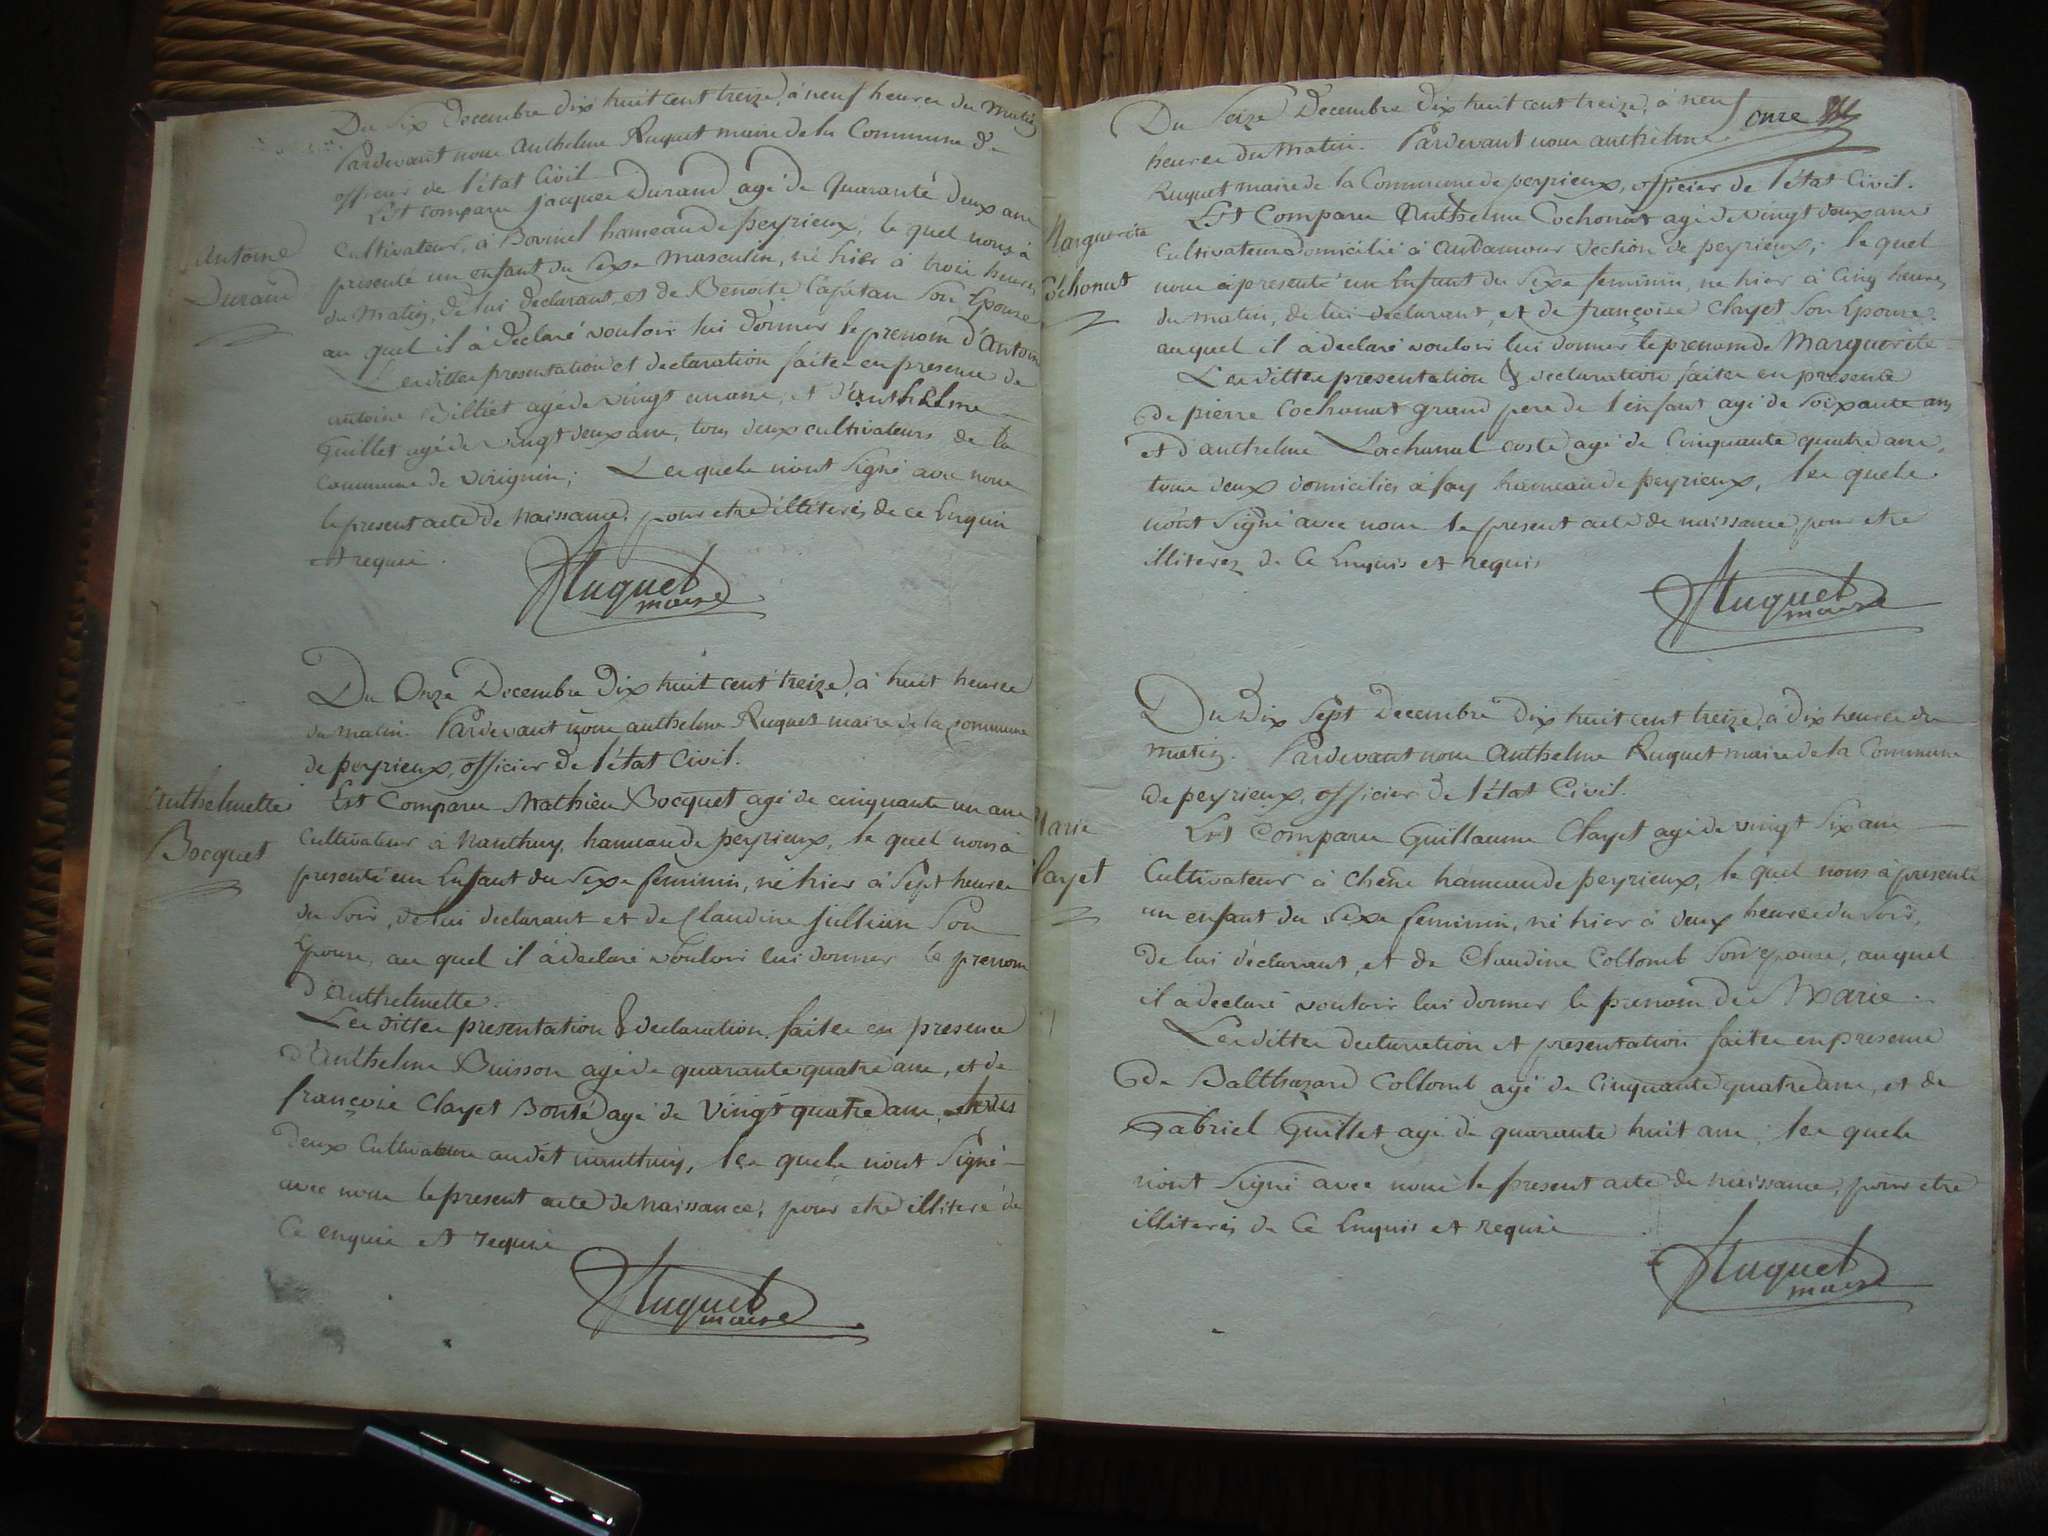 Du Six Decembre dix huit cent treize, à neuf heures du Matin
Pardevant nous Anthelme Ruquet maire de la Commune de
officier de l'état Civil
Est comparu Jacques Durand agé de Quarante deux ans
Antoine
Durand
Cultivateur, à Bovinel hameau de peyrieux, le quel nous à
presenté un enfant du Sexe Masculin, né hier à trois heures
du Matin, de lui declarant, et de Benoite Capitan Son Epouse
au quel il à declaré vouloir lui donner le prenom d'Antoine
Les dittes presentation et declaration faites en presence de
antoine Billiet agé de vingt un ans, et d'anthelme
Guillet agé de vingt deux ans, tous deux cultivateurs de la
Commune de virignin; Les quels n'ont Signé avec nous
le present acte de Naissance, pour etre illiterés de ce Enquis
et requis.
Ruquet
maire
Du Onze Decembre dix huit cent treize, à huit heures
du matin. Pardevant nous anthelme Ruquet maire de la commune
de peyrieux, officier de l'état Civil.
Anthelmette
Bocquet
Est Comparu Mathieu Bocquet agé de cinquante un ans
Cultivateur à Nanthuy, hameau de peyrieux, le quel nous à
presenté un Enfant du Sexe feminin, né hier à Sept heures
du Soir, de lui declarant et de Claudine Jullian Son
Epouse, au quel il à declaré vouloir lui donner le prenom
d'Anthelmette.
Les dittes presentation & declaration faites en presence
d'Anthelme Buisson agé de quarante quatre ans, et de
françois Clayet Bonté agé de Vingt quatre ans,
deux Cultivateurs audit nanthuy, les quels n'ont Signé
avec nous le present acte de Naissance, pour etre illiteré de
Ce enquis et requis
Ruquet
maire
Du Seize Decembre dix huit cent treize, à neuf
onze
heures du Matin. Pardevant nous anthelme
Ruquet maire de la Commune de peyrieux, officier de l'état Civil.
Marguerite
Cochonat
Est Comparu Anthelme Cochonat agé de vingt deux ans
Cultivateur domicilié à Andamour Section de peyrieux; le quel
nous à presenté un Enfant du Sexe feminin, né hier à Cinq heures
du matin, de lui declarant, et de françoise Clayet Son Epouse.
auquel il à declaré vouloir lui donner le prenom de Marguerite
Les dittes presentation & declaration faites en presence
de pierre Cochonat grand pere de l'enfant agé de Soixante ans
et d'anthelme Lochunal coste agé de Cinquante quatre ans,
tous deux domiciliés à fay hameau de peyrieux, les quels
n'ont Signé avec nous le present acte de naissance pour etre
illiterés de Ce Enquis et requis
Ruquet
maire
Du Dix Sept Decembre dix huit cent treize, à dix heures du
matin. Pardevant nous Anthelme Ruquet maire de la Commune
de peyrieux, officier de l'état Civil.
Marie
Clayet
Est Comparu Guillaume Clayet agé de vingt Six ans
Cultivateur à Chene hameau de peyrieux, le quel nous à presenté
un enfant du Sexe feminin, né hier à deux heures du Soir,
de lui declarant, et de Claudine Collomb Son epouse, auquel
il à declaré vouloir lui donner le prenom de Marie.
Les dittes declaration et presentation faites en presence
de Balthazard Collomb agé de Cinquante quatre ans, et de
Gabriel Guillet agé de quarante huit ans, les quels
n'ont Signé avec nous le present acte de naissance, pour etre
illiterés de Ce Enquis et requis
Ruquet
maire